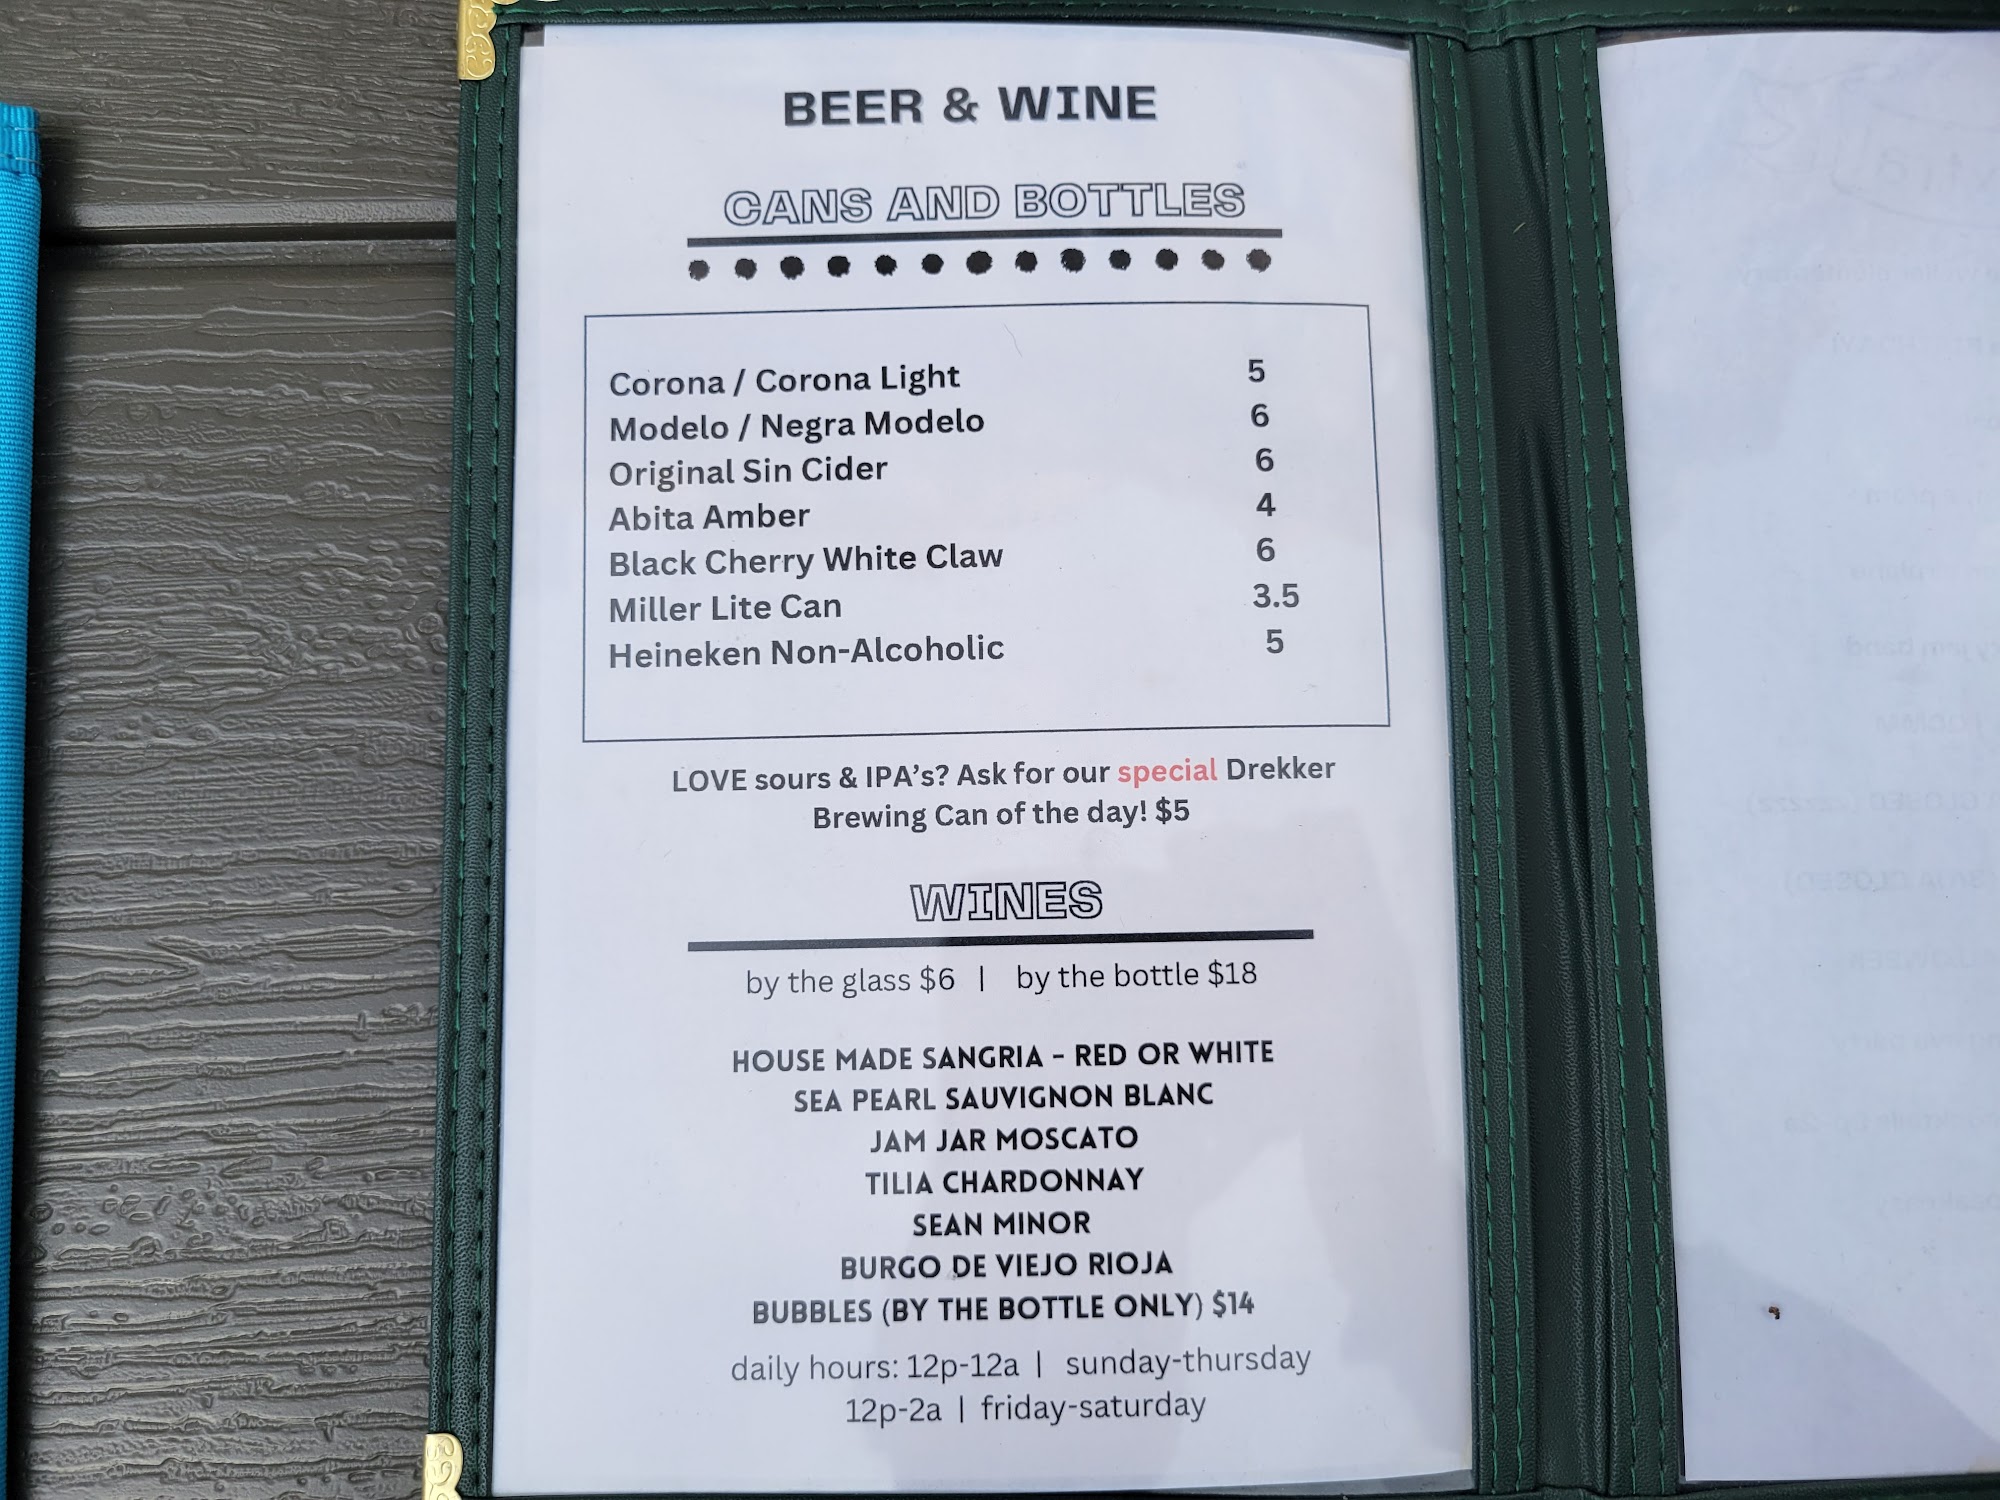 BEER & WINE
CANS AND BOTTLES
Corona / Corona Light 5
Modelo / Negra Modelo 6
Original Sin Cider 6
Abita Amber 4
Black Cherry White Claw 6
Miller Lite Can 3.5
Heineken Non-Alcoholic 5
LOVE sours & IPA's? Ask for our special Drekker
Brewing Can of the day! $5
WINES
by the glass $6 | by the bottle $18
HOUSE MADE SANGRIA - RED OR WHITE
SEA PEARL SAUVIGNON BLANC
JAM JAR MOSCATO
TILIA CHARDONNAY
SEAN MINOR
BURGO DE VIEJO RIOJA
BUBBLES (BY THE BOTTLE ONLY) $14
daily hours: 12p-12a | sunday-thursday
12p-2a | friday-saturday